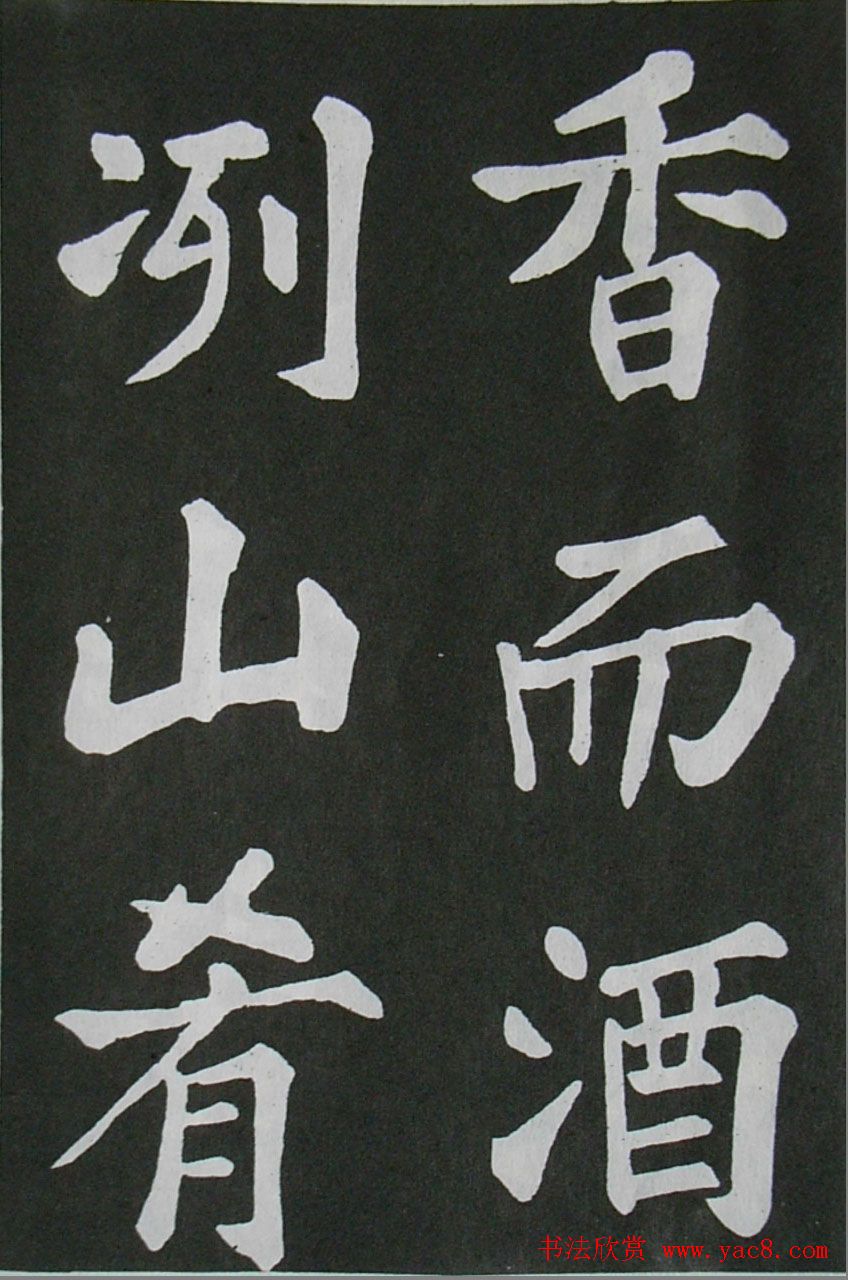 香而酒
冽山肴
书法欣赏 www.yac8.com